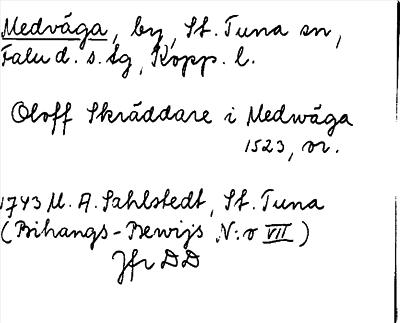 Medväga, by, St. Tuna sn,
Falu d. s. tg, Kopp. l.
Oloff Skräddare i Medwäga
1523, or.
1743 M. A. Sahlstedt, St. Tuna
(Bihangs-Bewijs N:o VII)
Jfr DD